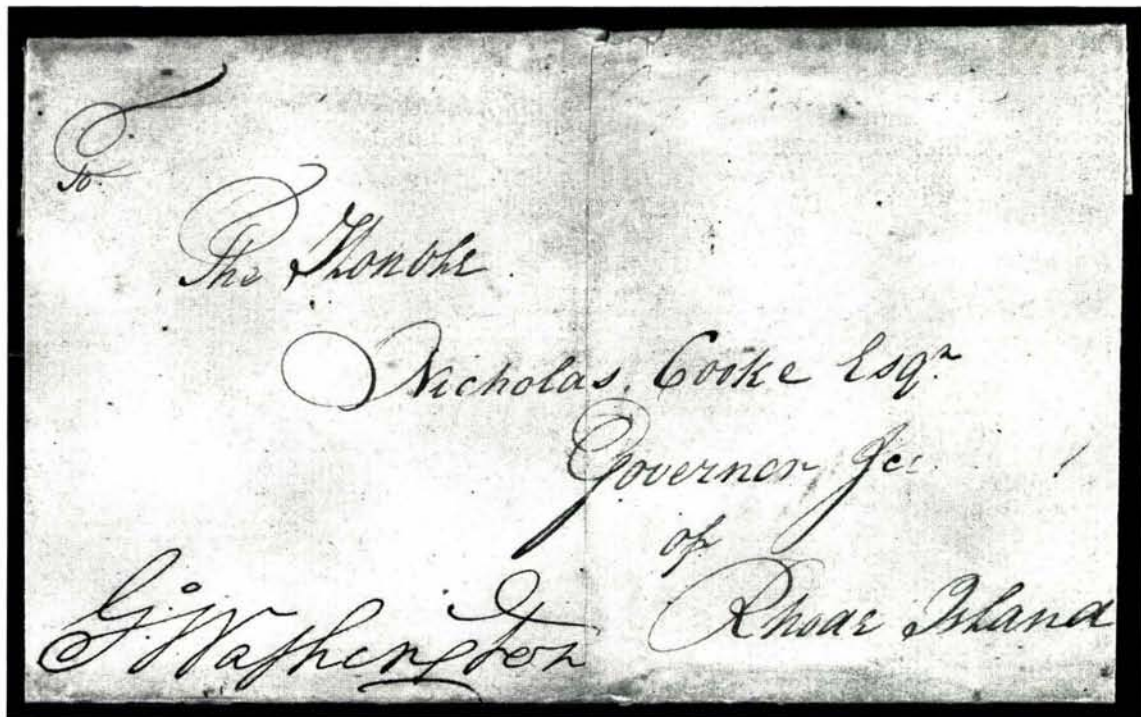 To
The Honble
Nicholas Cooke Esqr
Governor &c
of
Rhode Island
Go: Washington